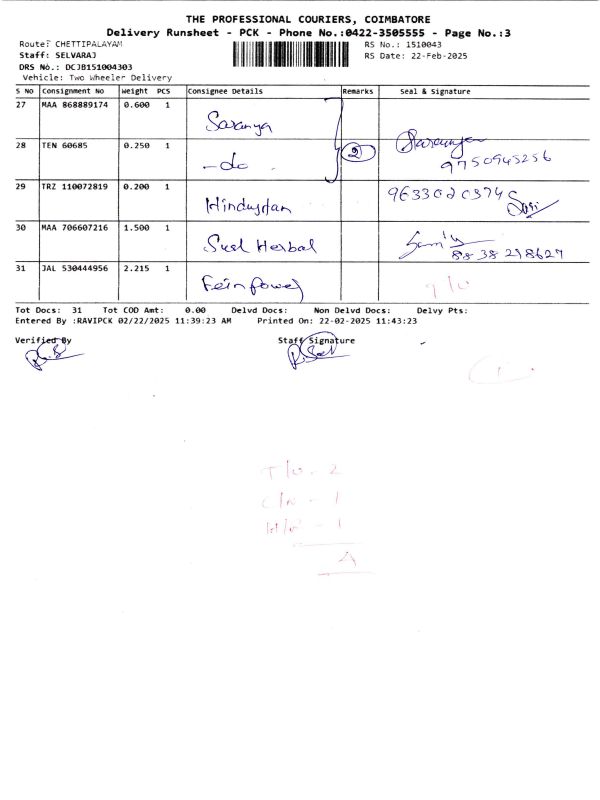 THE PROFESSIONAL COURIERS, COIMBATORE
Delivery Runsheet - PCK - Phone No.:0422-3505555 - Page No.:3
Route: CHETTIPALAYAM
RS No.: 1510043
Staff: SELVARAJ
RS Date: 22-Feb-2025
DRS No.: DCJB151004303
Vehicle: Two Wheeler Delivery
S NO Consignment No Weight PCS Consignee Details Remarks Seal & Signature
27 MAA 868889174 0.600 1 Saranya
28 TEN 60685 0.250 1 -do 2 Saranya 9750945256
29 TRZ 110072819 0.200 1 Hindustan 9633020374
30 MAA 706607216 1.500 1 Susl Herbal 8838298627
31 JAL 530444956 2.215 1 Fein Power T/O
Tot Docs: 31 Tot COD Amt: 0.00 Delvd Docs: Non Delvd Docs: Delvy Pts:
Entered By :RAVIPCK 02/22/2025 11:39:23 AM Printed On: 22-02-2025 11:43:23
Verified By Staff Signature
T/O - 2
C/N - 1